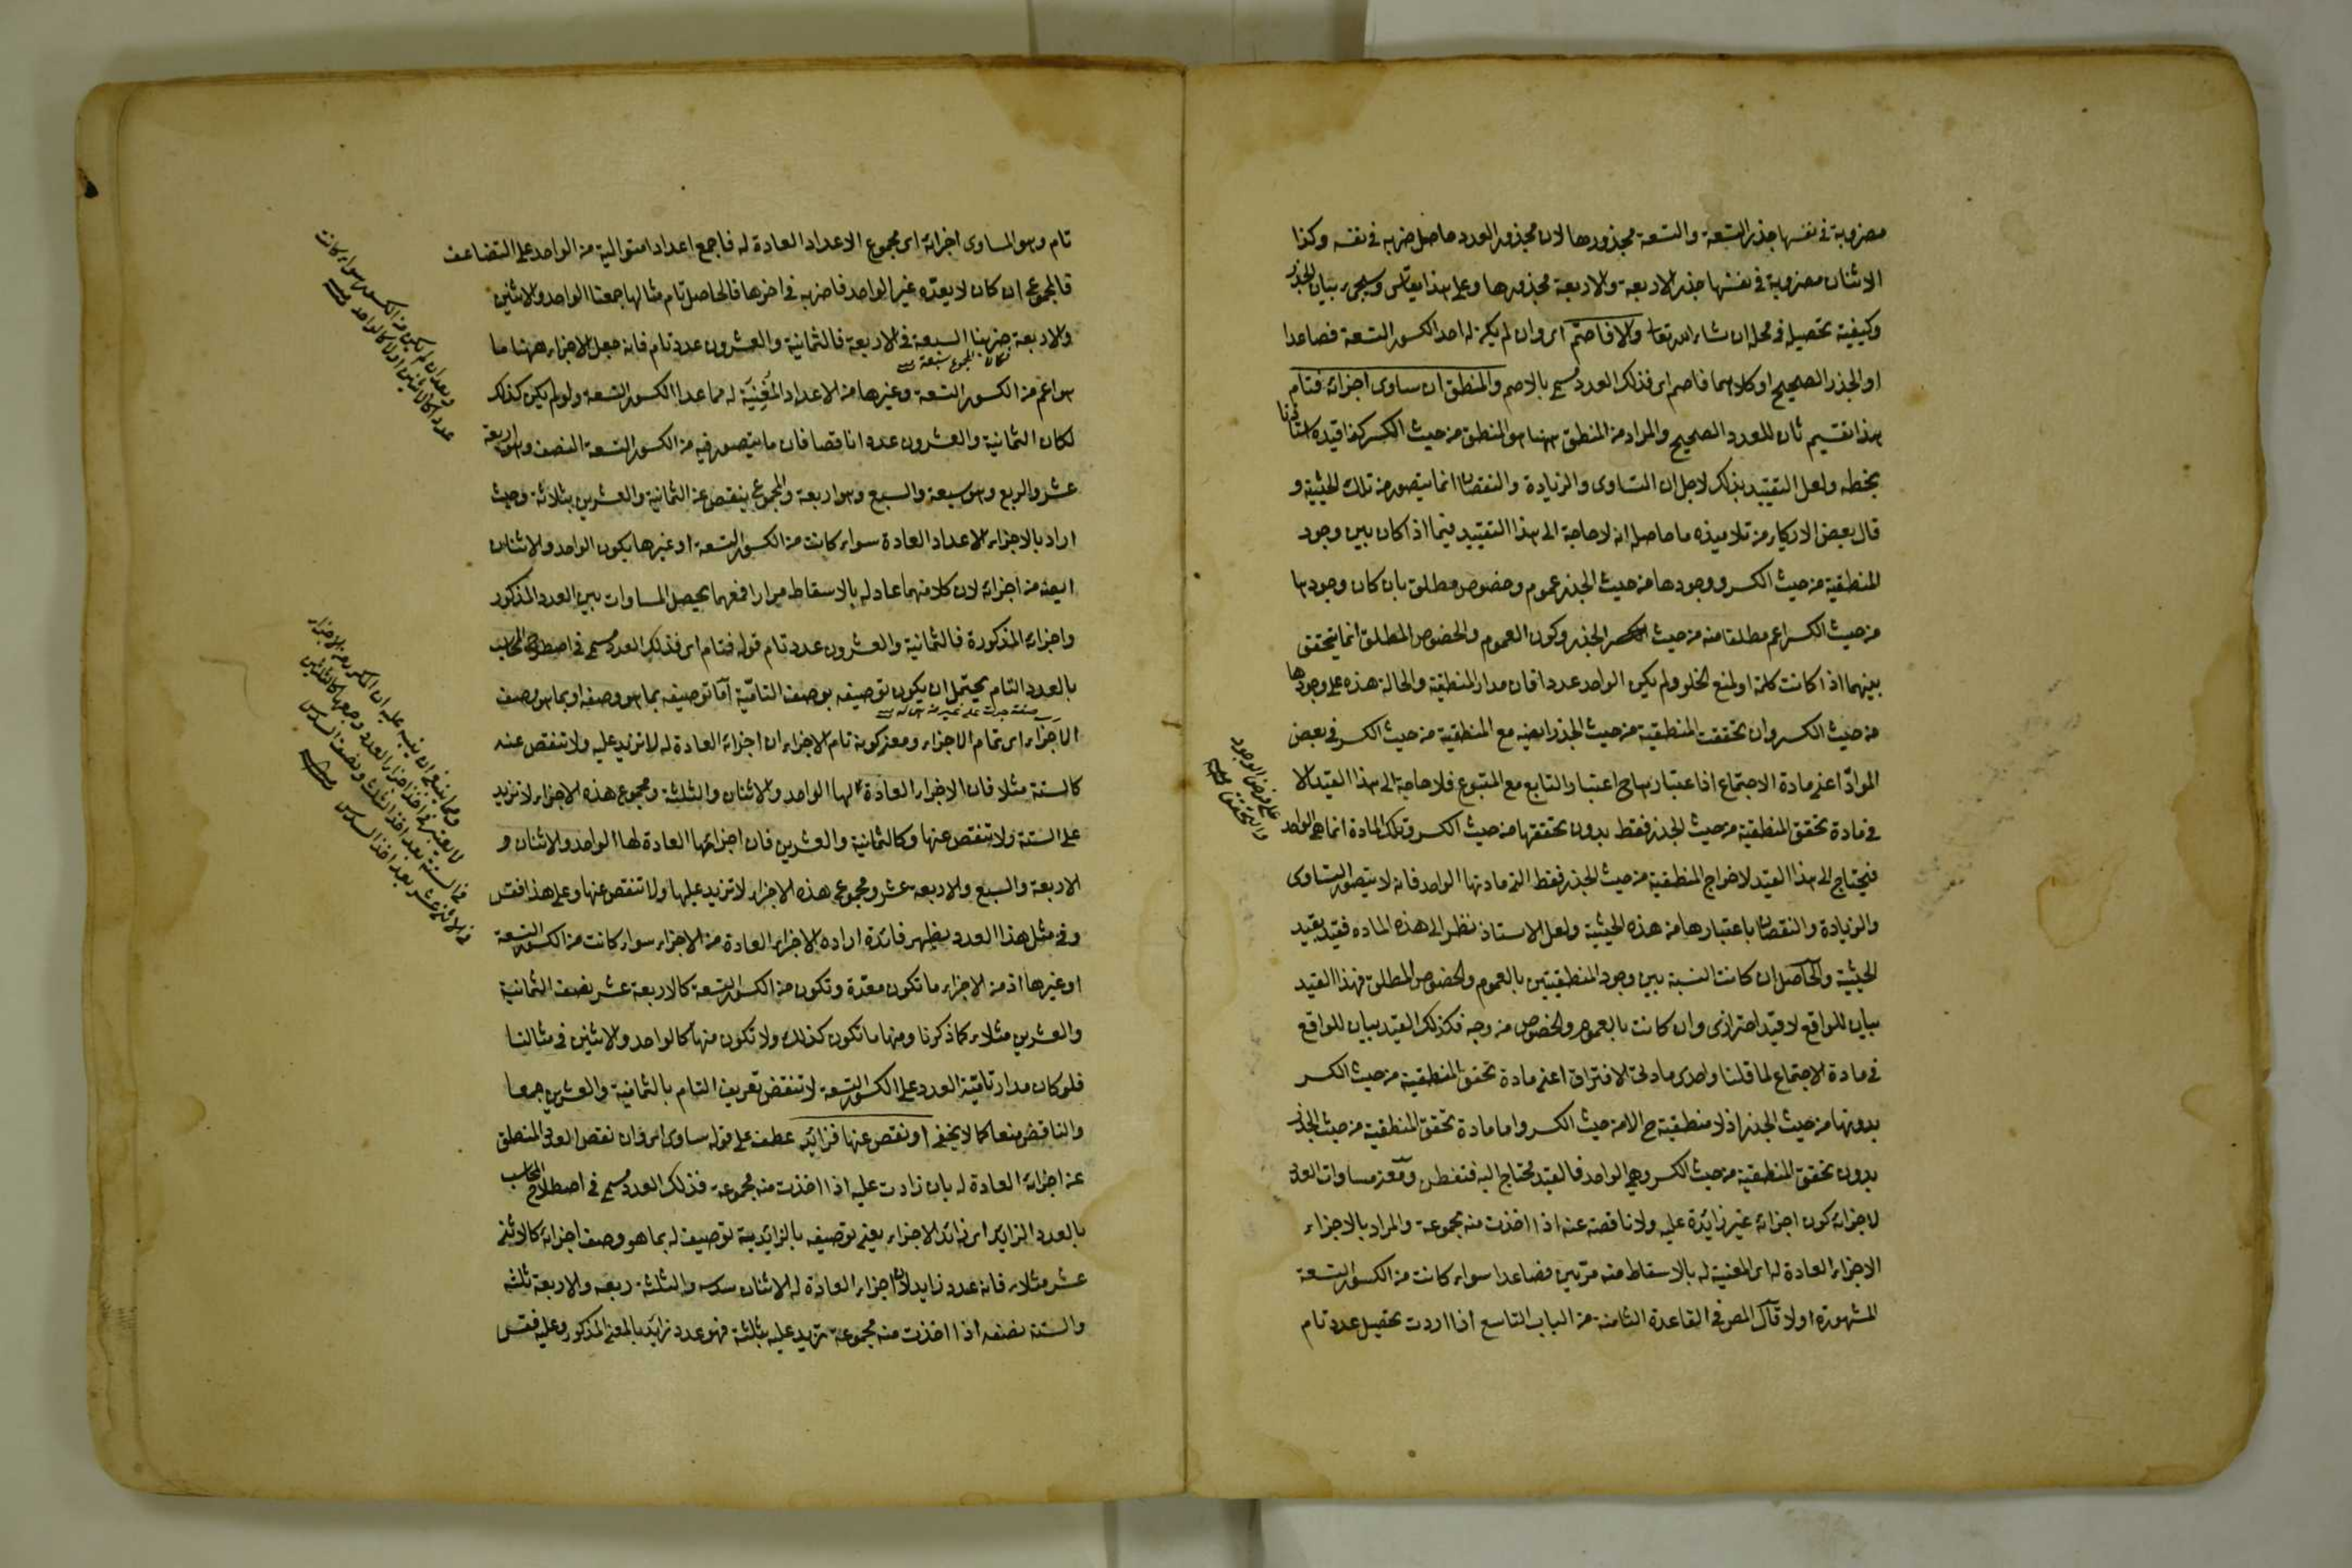 مضروبة في نفسها جذر التسعة والتسعة مجذورها لان مجذور العدد حاصل ضربه في نفسه وكذا
الاثنان مضروبة في نفسها جذر الاربعة والاربعة مجذورها وعلى هذا يقاس وسيجىء بيان الجذر
وكيفية تحصيله في محله ان شاء الله تعا والا فاصم اى وان لم يكن له احد الكسور التسعة فصاعدا
او الجذر الصحيح او كلاهما فاصم اى فذلك العدد يسمى بالاصم والمنطق ان ساوى اجزائه فتام
هذا تقسيم ثان للعدد الصحيح والمراد من المنطق ههنا هو المنطق من حيث الكسر كذا قيده استاذنا
بخطه ولعل التقييد بذلك لاجل ان التساوى والزيادة والنقصان انما يتصور من تلك الحيثية و
قال بعض الازكياء من تلاميذه ما حاصله انه لا حاجة الى هذا التقييد فيما اذا كان بين وجود
المنطقية من حيث الكسر ووجودها من حيث الجذر عموم وخصوص مطلق بان كان وجودها
من حيث الكسر اعم مطلقا منه من حيث الجذر وكون العموم والخصوص المطلق انما يتحقق
بينهما اذا كانت كلمة او لمنع الخلو ولم يكن الواحد عددا فان مدار المنطقية والحالة هذه على وجودها
من حيث الكسر وان تحققت المنطقية من حيث الجذر ايضا مع المنطقية من حيث الكسر في بعض
المواد اعنى مادة الاجتماع اذا اعتبارها ح اعتبار التابع مع المتبوع فلا حاجة الى هذا القيد الا
في مادة تحقق المنطقية من حيث الجذر فقط بدون تحققها من حيث الكسر وتلك المادة انما هى الواحد
فيحتاج الى هذا القيد لاخراج المنطقية من حيث الجذر فقط التى مادتها الواحد فانه لا يتصور التساوى
والزيادة والنقصان باعتبارها من هذه الحيثية ولعل الاستاذ نظر الى هذه المادة فقيد بقيد
الحيثية والحاصل ان كانت النسبة بين وجود المنطقيتين بالعموم والخصوص المطلق فهذا القيد
بيان للواقع لا قيد احترازى وان كانت بالعموم والخصوص من وجه فكذلك القيد بيان للواقع
في مادة الاجتماع لما قلنا واحدى مادتى الافتراق اعنى مادة تحقق المنطقية من حيث الكسر
بدونها من حيث الجذر اذ لا منطقية ح الا من حيث الكسر واما مادة تحقق المنطقية من حيث الجذر
بدون تحقق المنطقية من حيث الكسر وهى الواحد فالقيد محتاج اليه فتفطن ومعنى مساوات العدد
لاجزائه كون اجزائه غير زائدة عليه ولا ناقصة عنه اذا اخذت منه مجموعة والمراد بالاجزاء
الاجزاء العادة له اى المفنية له بالاسقاط منه مرتين فصاعدا سواء كانت من الكسور التسعة
المشهورة او لا قال المص في القاعدة الثامنة من الباب التاسع اذا اردت تحصيل عدد تام
على فرض الوجود
والتحقق
تام وهو المساوى اجزائه اى مجموع الاعداد العادة له فاجمع اعدادا متوالية من الواحد على التضاعف
فالمجموع ان كان لا يعده غير الواحد فاضربه في اخرها فالحاصل تام مثالها جمعنا الواحد والاثنين
والاربعة ضربنا السبعة في الاربعة فالثمانية والعشرون عدد تام فانه جعل الاجزاء ههنا ما
فكان المجموع سبعة
هو اعم من الكسور التسعة وغيرها من الاعداد المفنية له مما عدا الكسور التسعة ولو لم يكن كذلك
لكان الثمانية والعشرون عددا ناقصا فان ما يتصور فيه من الكسور التسعة النصف وهو اربعة
عشر والربع وهو سبعة والسبع وهو اربعة والمجموع ينقص عن الثمانية والعشرين بثلاثة وحيث
اراد بالاجزاء الاعداد العادة سواء كانت من الكسور التسعة او غيرها يكون الواحد والاثنان
ايضا من اجزائه لان كلا منهما عاد له بالاسقاط مرارا فعهما يحصل المساوات بين العدد المذكور
واجزائه المذكورة فالثمانية والعشرون عدد تام قوله فتام اى فذلك العدد يسمى في اصطلاح المحاسب
بالعدد التام يحتمل ان يكون توصيفه بوصف التامية اما توصيفه بما هو وصفه او بما هو وصف
صفة جرت على غير من هى له
الاجزاء اى تمام الاجزاء ومعنى كونه تام الاجزاء ان اجزائه العادة له لا تزيد عليه ولا تنقص عنه
كالستة مثلا فان الاجزاء العادة لها الواحد والاثنان والثلثة ومجموع هذه الاجزاء لا تزيد
على الستة ولا تنقص عنها وكالثمانية والعشرين فان اجزائها العادة لها الواحد والاثنان و
الاربعة والسبع والاربعة عشر ومجموع هذه الاجزاء لا تزيد عليها ولا تنقص عنها وعلى هذا فقس
وفي مثل هذا العدد يظهر فائدة ارادة الاجزاء العادة من الاجزاء سواء كانت من الكسور التسعة
او غيرها اذ من الاجزاء ما تكون معدة وتكون من الكسور التسعة كالاربعة عشر نصف الثمانية
والعشرين مثلا كما ذكرنا ومنها ما تكون كذلك ولا تكون منها كالواحد والاثنين في مثالنا
فلو كان مدار تامية العدد على الكسور التسعة لانتقض تعريف التام بالثمانية والعشرين جمعا
والناقص منعا كما لا يخفى او نقص عنها فزائد عطف على قوله ساوى اى وان نقص العدد المنطق
عن اجزائه العادة له بان زادت عليه اذا اخذت منه مجموعة فذلك العدد يسمى في اصطلاح المحاسب
بالعدد الزايد اى زائد الاجزاء يعنى توصيفه بالزائدية توصيف له بما هو وصف اجزائه كالاثنى
عشر مثلا فانه عدد زايد لان اجزاء العادة له الاثنان سدسه والثلثة ربعه والاربعة ثلثه
والستة نصفه اذا اخذت منه مجموعة تزيد عليه بثلثة فهو عدد زايد بالمعنى المذكور وعليه فقس